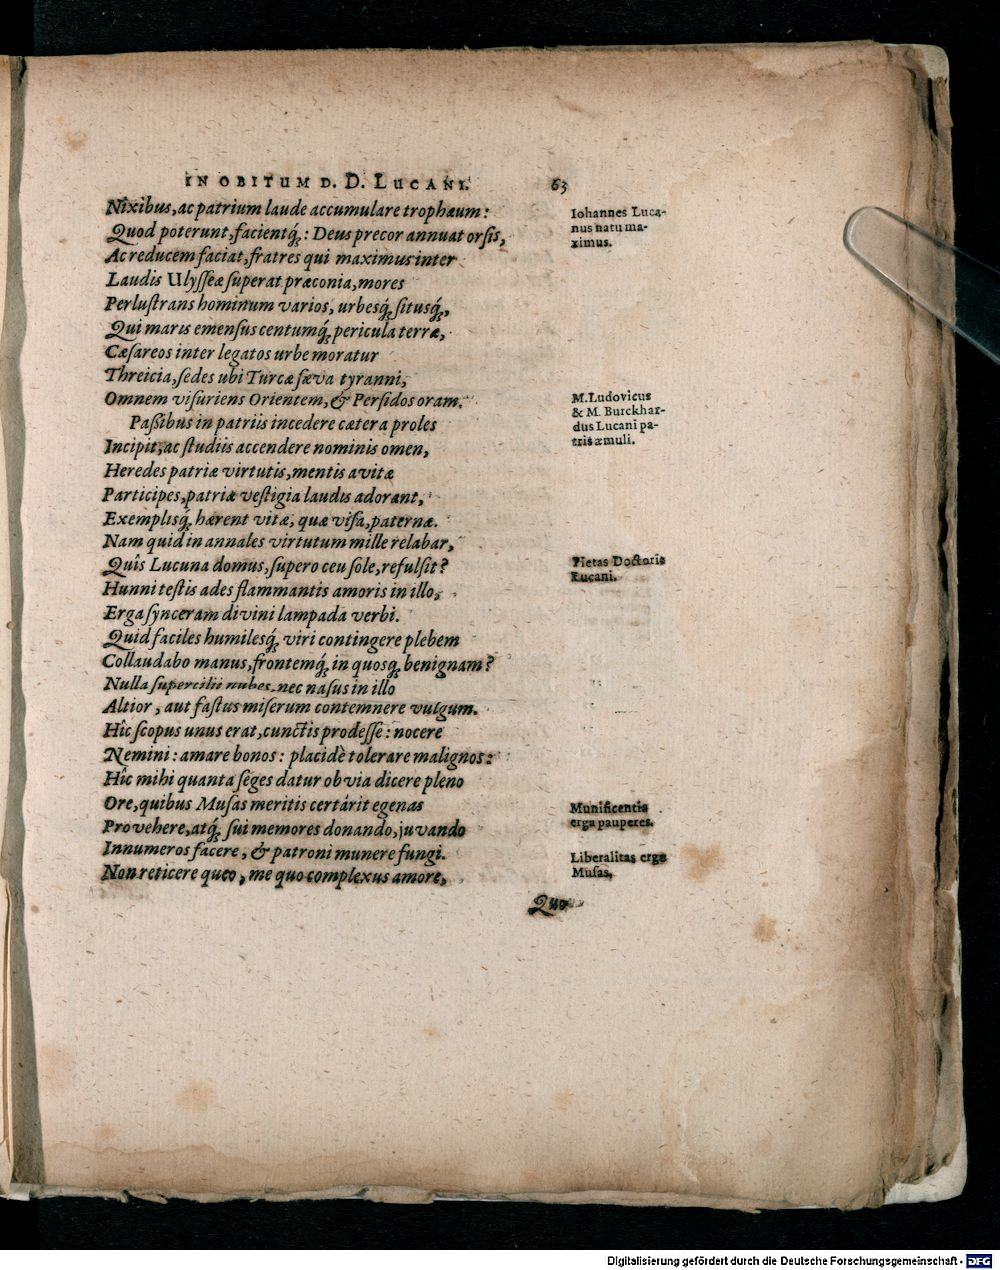 IN OBITUM D. D. LUCANI. 63
Nixibus, ac patrium laude accumulare trophæum:
Quod poterunt, facientq́;: Deus precor annuat orsis,
Ac reducem faciat, fratres qui maximus inter
Laudis Ulysseæ superat præconia, mores
Perlustrans hominum varios, urbesq́; situsq́;,
Qui maris emensus centumq́; pericula terræ,
Cæsareos inter legatos urbe moratur
Threicia, sedes ubi Turcæ sæva tyranni,
Omnem visuriens Orientem, & Persidos oram.
Passibus in patriis incedere cætera proles
Incipit, ac studiis accendere nominis omen,
Heredes patriæ virtutis, mentis avitæ
Participes, patriæ vestigia laudis adorant,
Exemplisq́; hærent vitæ, quæ visa, paternæ.
Nam quid in annales virtutum mille relabar,
Quîs Lucuna domus, supero ceu sole, refulsit?
Hunni testis ades flammantis amoris in illo,
Erga synceram divini lampada verbi.
Quid faciles humilesq́; viri contingere plebem
Collaudabo manus, frontemq́; in quosq; benignam?
Nulla supercilii nubes, nec nasus in illo
Altior, aut fastus miserum contemnere vulgum.
Hîc scopus unus erat, cunctis prodesse: nocere
Nemini: amare bonos: placidè tolerare malignos:
Hîc mihi quanta seges datur obvia dicere pleno
Ore, quibus Musas meritis certárit egenas
Provehere, atq́; sui memores donando, juvando
Innumeros facere, & patroni munere fungi.
Non reticere queo, me quo complexus amore,
Quo
Iohannes Luca-
nus natu ma-
ximus.
M. Ludovicus
& M. Burckhar-
dus Lucani pa-
tris æmuli.
Pietas Doctoris
Lucani.
Munificentia
erga pauperes.
Liberalitas erga
Musas.
Digitalisierung gefördert durch die Deutsche Forschungsgemeinschaft - DFG